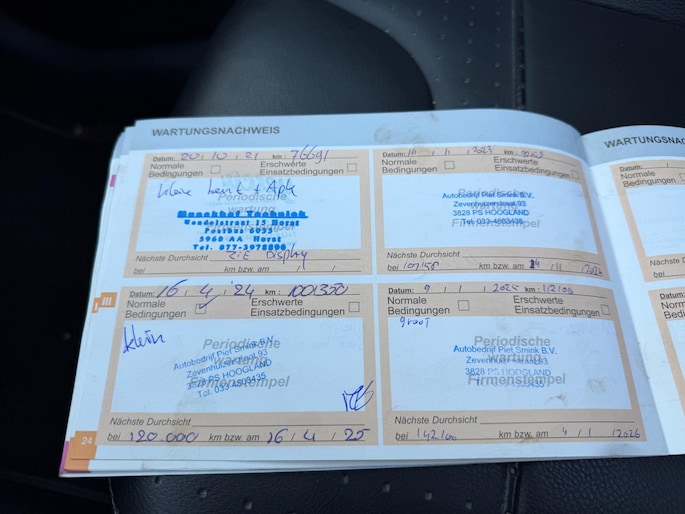 WARTUNGSNACHWEIS
Datum: 20 / 10 / 21 km: 76691
Normale Bedingungen
Erschwerte Einsatzbedingungen
kleine beurt + Apk
Periodische
wartung
Techniek
Wendelstraat 15 Horst
Postbus 6033
5960 AA Horst
Tel. 077-3978800
Nächste Durchsicht
ZiE Display
bei / km bzw. am / /
Datum: 16 / 4 / '24 km: 1001300
Normale Bedingungen
Erschwerte Einsatzbedingungen
klein
Periodische
wartung
Firmenstempel
Autobedrijf Piet Smink B.V.
Zevenhuizerstraat 93
3828 PS HOOGLAND
Tel. 033-4803435
Nächste Durchsicht
bei 120.000 km bzw. am 16 / 4 / 25
Normale Bedingungen
Erschwerte Einsatzbedingungen
Periodische
wartung
Firmenstempel
Autobedrijf Piet Smink B.V.
Zevenhuizerstraat 93
3828 PS HOOGLAND
Tel. 033-4803435
Nächste Durchsicht
bei km bzw. am
Datum: 9 / 1 / 2025 km:
Normale Bedingungen
Erschwerte Einsatzbedingungen
groot
Periodische
wartung
Firmenstempel
Autobedrijf Piet Smink B.V.
3828 PS HOOGLAND
Nächste Durchsicht
bei km bzw. am / 1 / 2026
III
24
WARTUNGSNAC
Datum:
Normale
Bedingungen
Datum:
Normale
Bedingungen